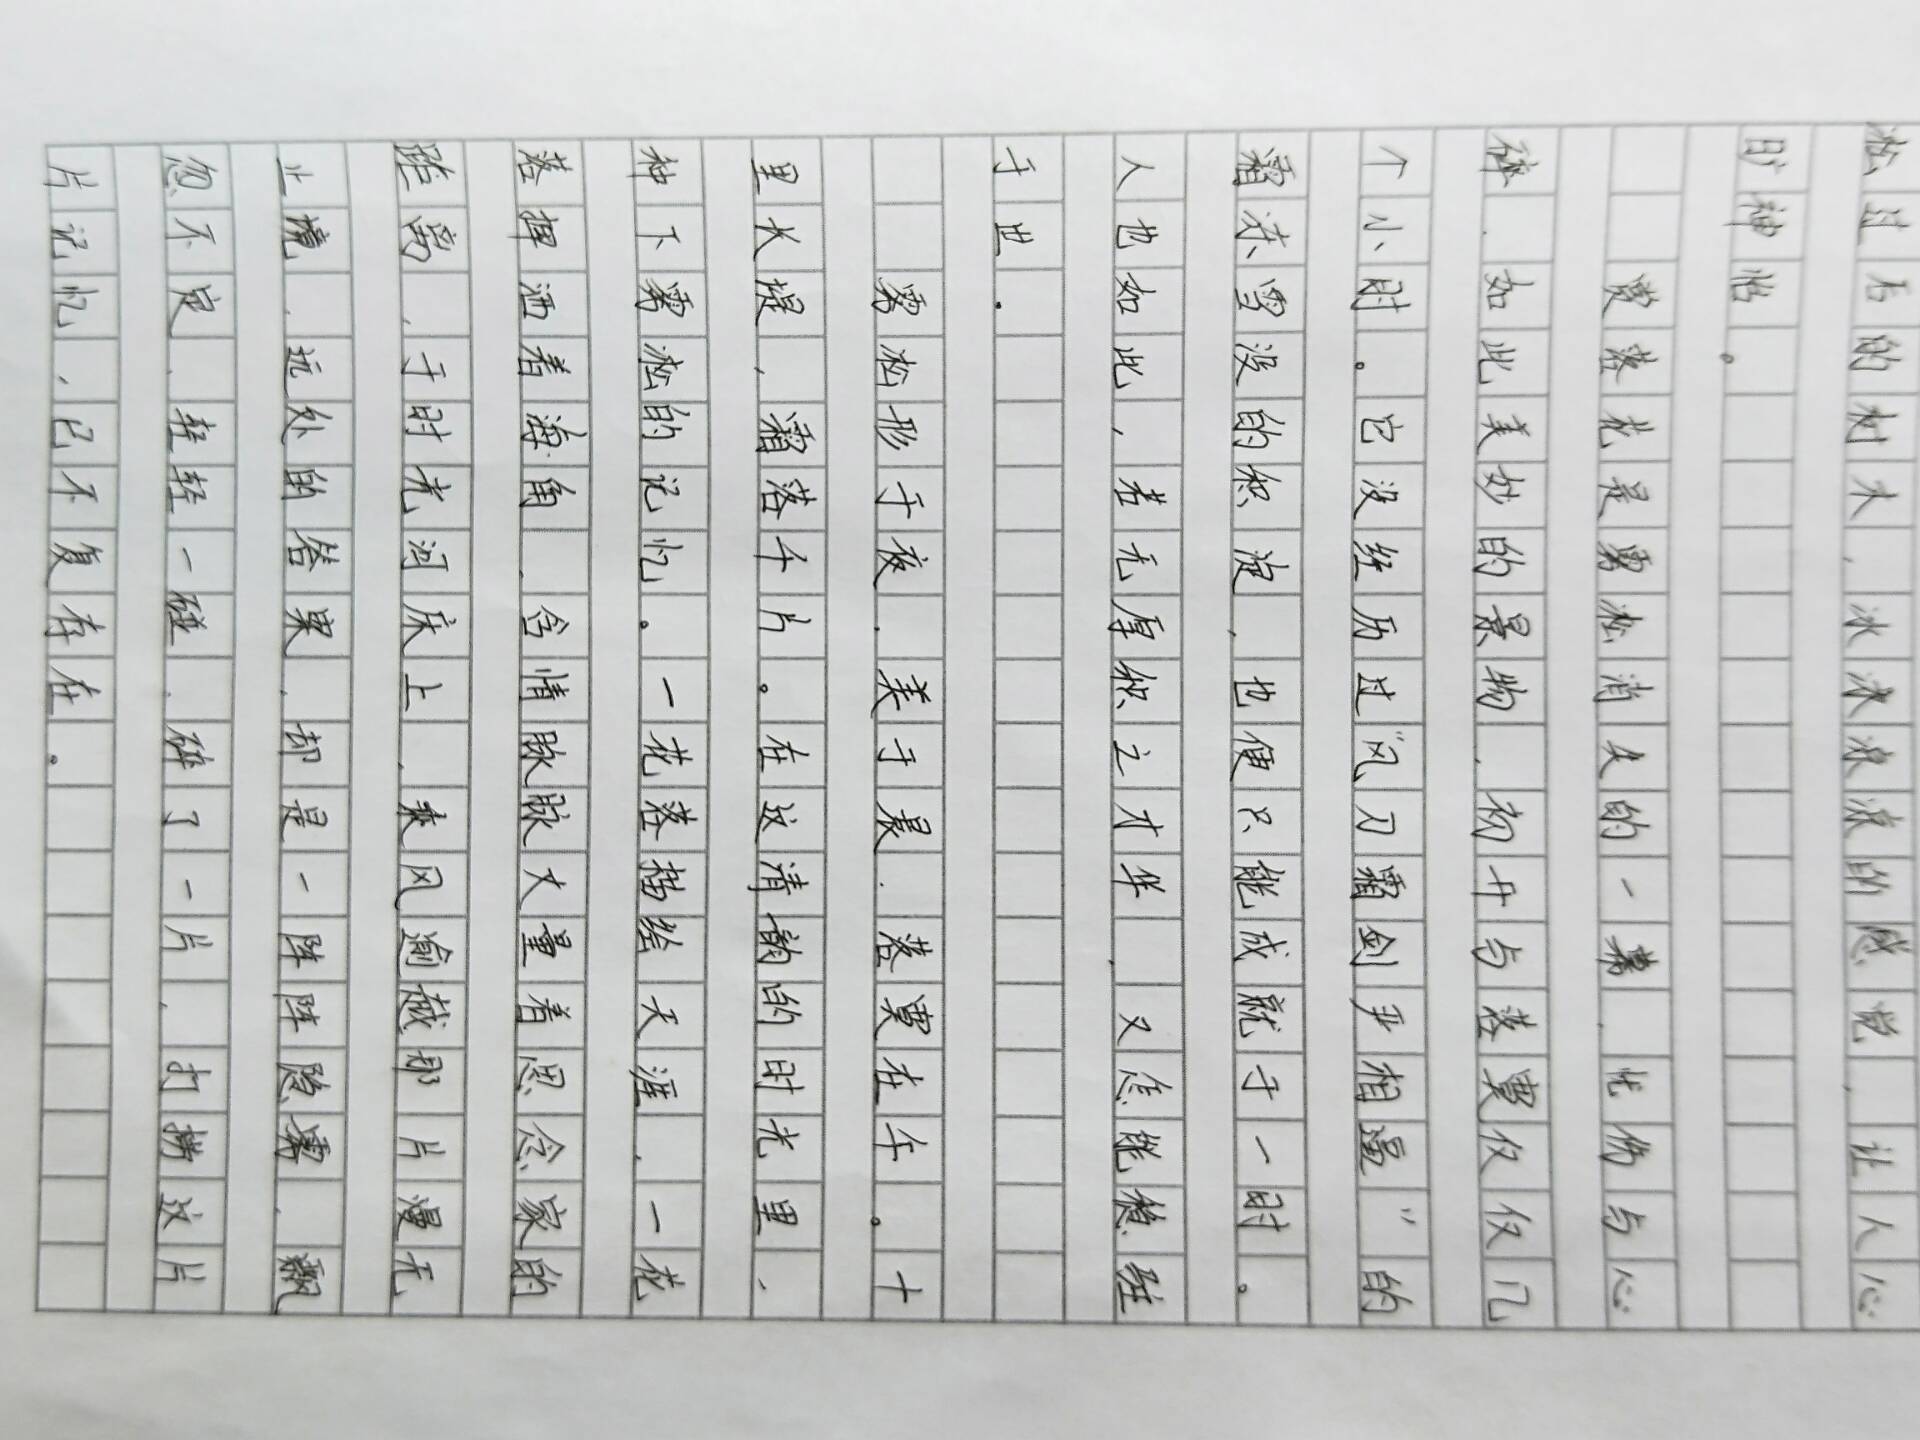 凇过后的树木，冰冰凉凉的感觉，让人心
旷神怡。
霣落花是雾凇消失的一幕，忧伤与心
碎，如此美妙的景物，初升与落霣仅仅几
个小时。它没经历过“风刀霜剑严相逼”的
霜冻雪没的积淀，也便只能成就于一时。
人也如此，若无厚积之才华，又怎能稳驻
于世。
雾凇形于夜，美于晨，落霣在午。十
里长堤，霜落千片。在这清韵的时光里，
种下雾凇的记忆。一花落描绘天涯，一花
落挥洒着海角，含情脉脉丈量着思念家的
距离，于时光河床上，乘风逾越那片漫无
止境，远处的答案，却是一阵阵隐雾，飘
忽不定，轻轻一碰，碎了一片，打捞这片
片记忆，已不复存在。